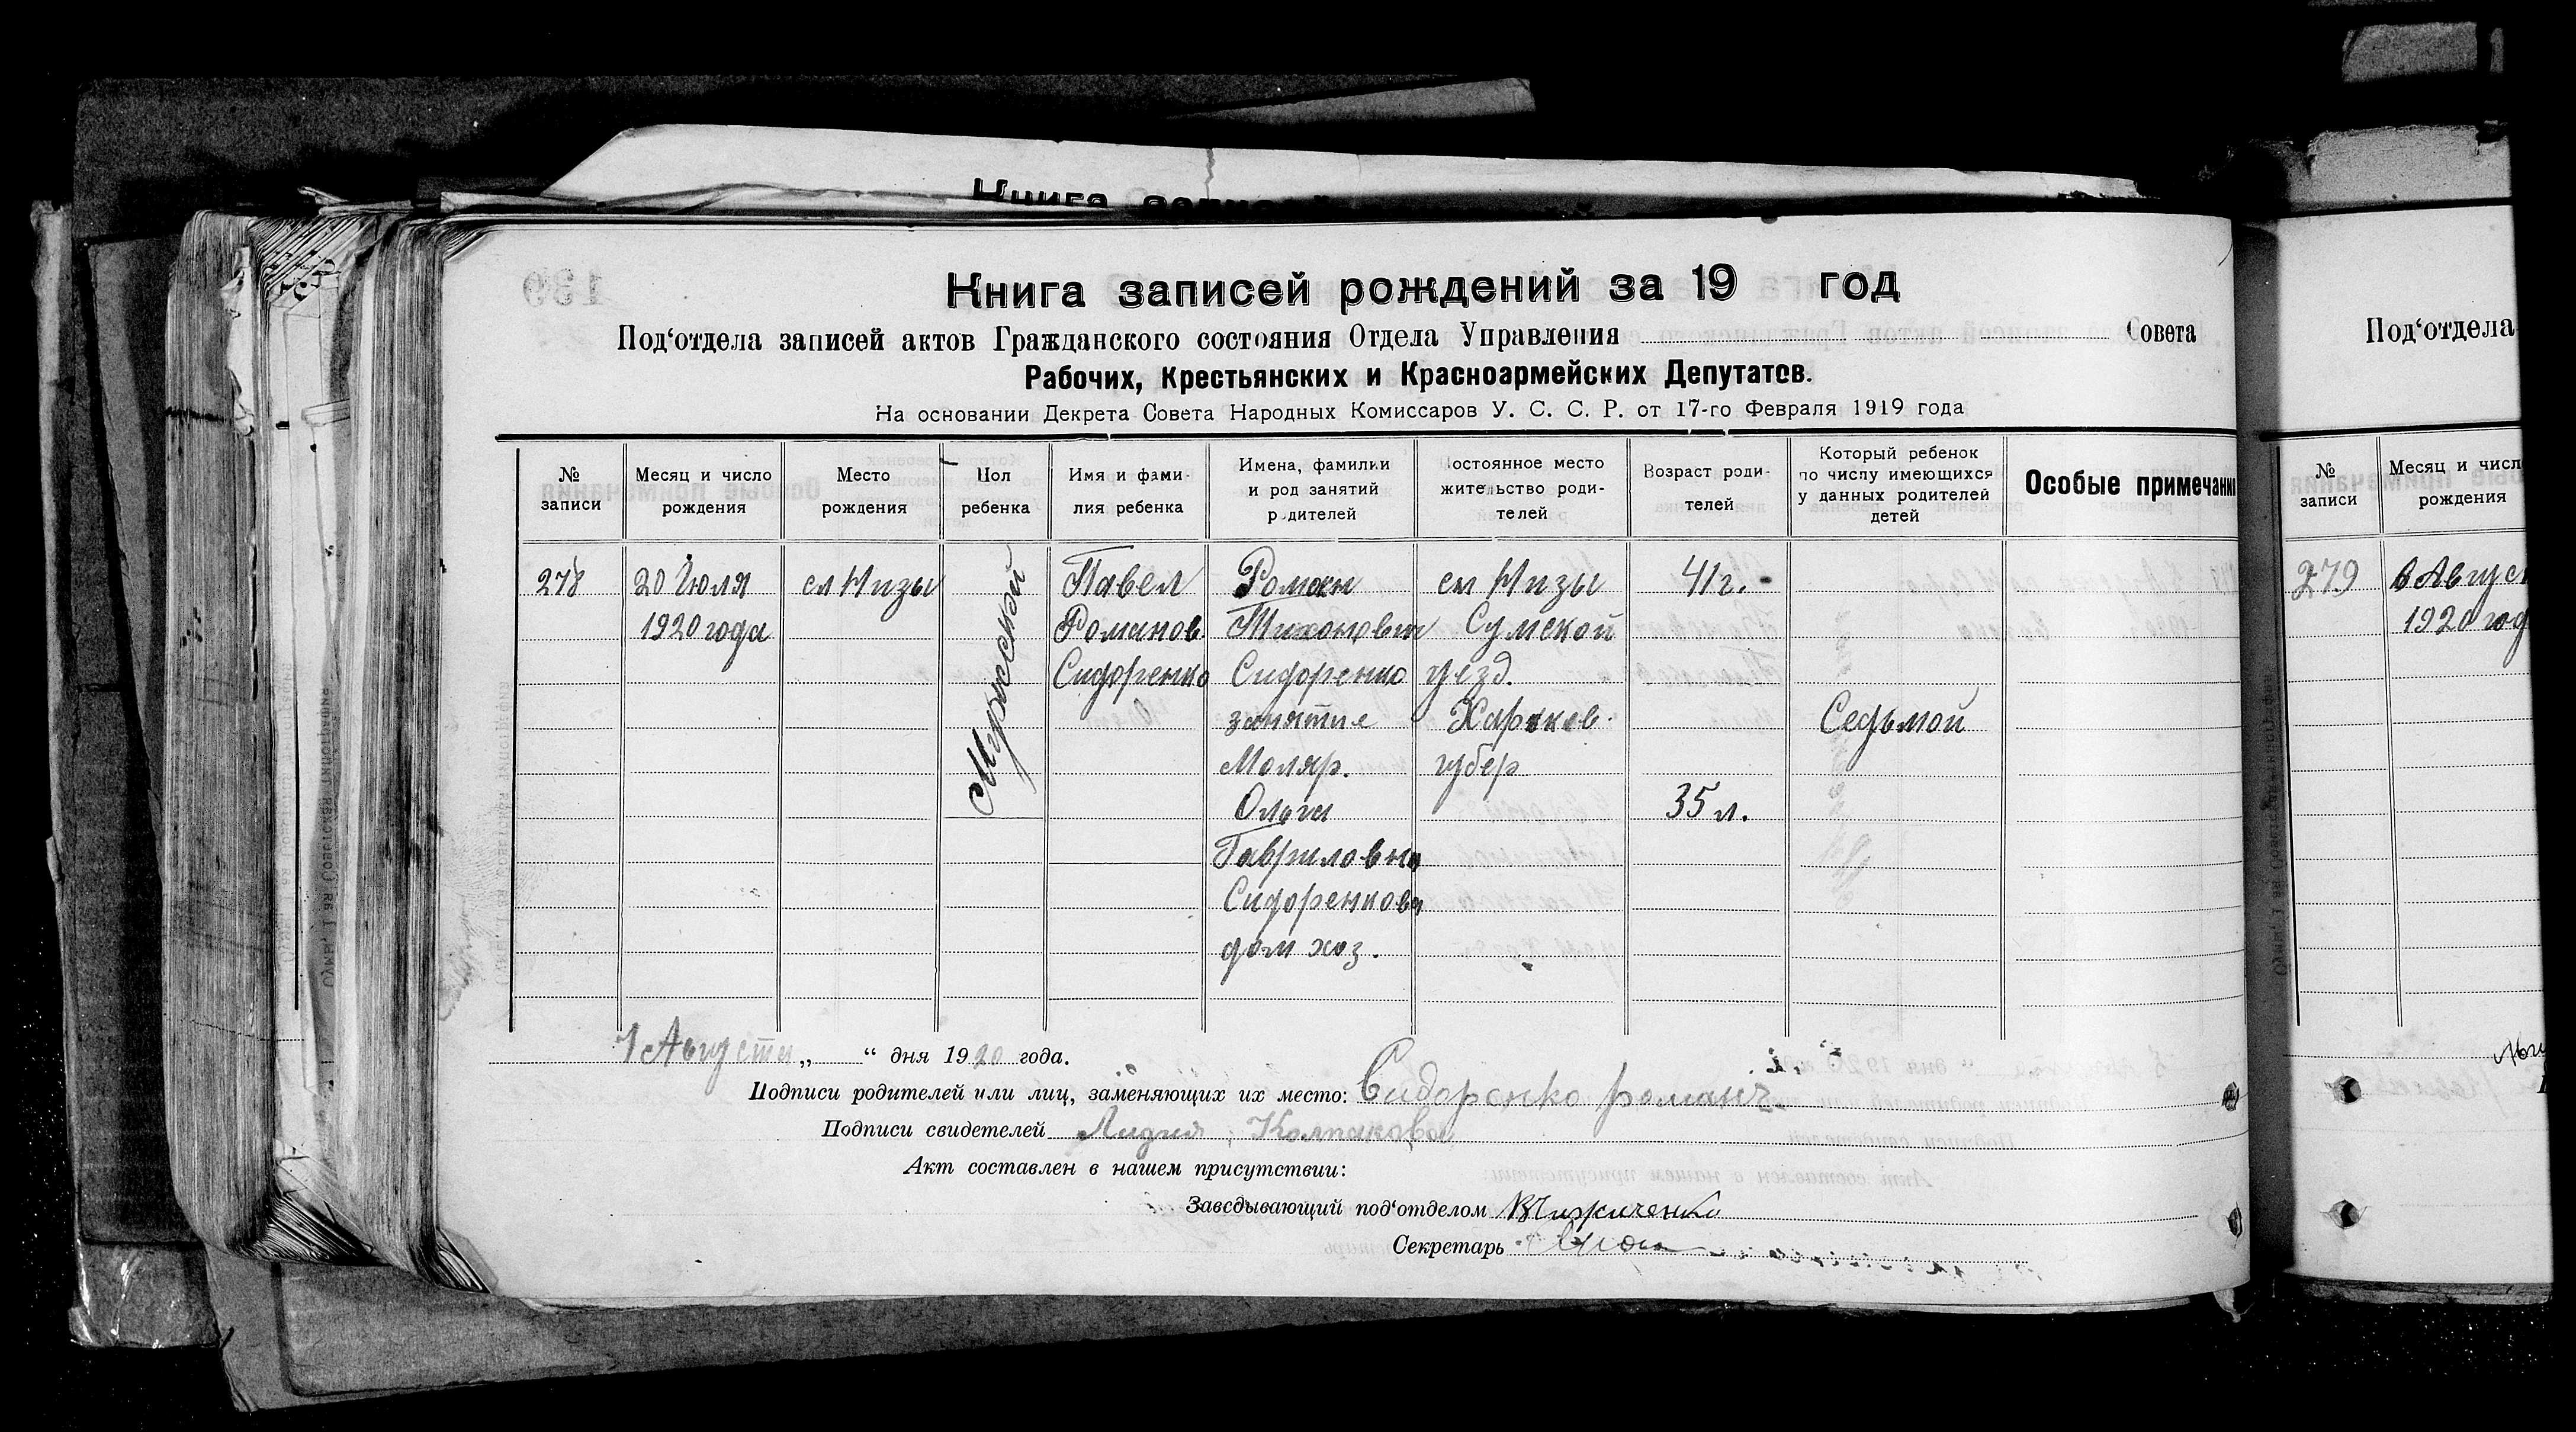 Книга записей рождений за 19 год
Под‘отдела записей актов Гражданского состояния Отдела Управления Совета
Рабочих, Крестьянских и Красноармейских Депутатов.
На основании Декрета Совета Народных Комиссаров У. С. С. Р. от 17-го Февраля 1919 года
№ записи
Месяц и число рождения
Место рождения
Пол ребенка
Имя и фами-
лия ребенка
Имена, фамилии
и род занятий
родителей
Постоянное место
жительство роди-
телей
Возраст роди-
телей
Который ребенок
по числу имеющихся
у данных родителей
детей
Особые примечани
278
20 Июля
1920 года
сл Низы
Мужеской
Павел
Романов
Сидоренко
Роман
Тихонович
Сидоренко
занятие
Моляр.
Ольга
Гавриловна
Сидоренкова
дом хоз.
сл Низы
Сумской
уезд.
Харьков.
губер
41 г.
35 л.
Седьмой
1 Августа „ “ дня 1920 года.
Подписи родителей или лиц, заменяющих их место: Сидоренко романъ
Подписи свидетелей Лидия Колпакова
Акт составлен в нашем присутствии:
Заведывающий под‘отделом
Секретарь
Под‘отдела
№ записи
Месяц и числ
рождения
279
6 Август
1920 год